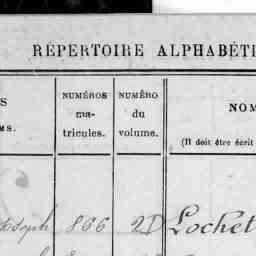 RÉPERTOIRE ALPHABÉTI
S
MS.
NUMÉROS
ma-
tricules.
NUMÉRO
du
volume.
NOM
(Il doit être écrit
oseph 866 2D Lochet